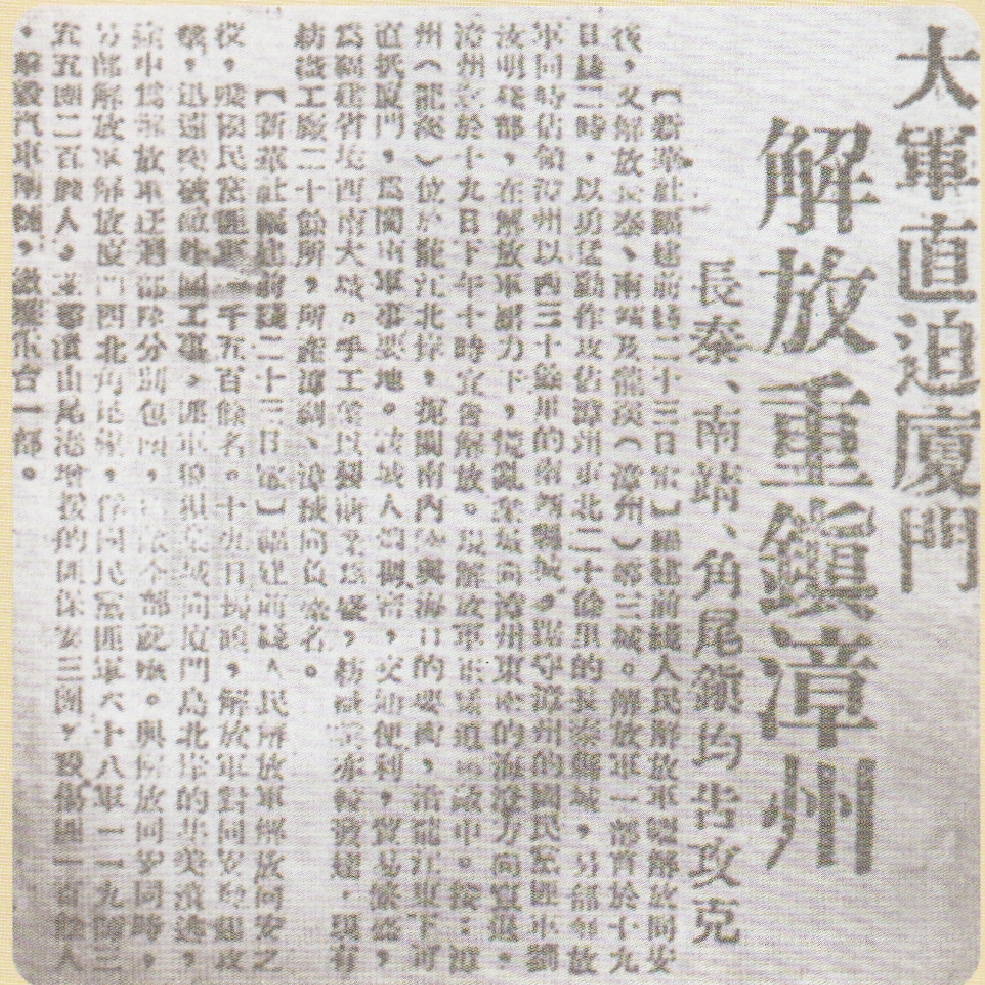 大軍直迫廈門
解放重鎮漳州
長泰、南靖、角尾鎮均告攻克
【新華社福建前綫二十三日電】福建前綫人民解放軍繼解放同安
後，又解放長泰、南靖及龍溪（漳州）等三城。解放軍一部實於十九
日晨二時，以勇猛動作攻佔漳州東北二十餘里的長泰縣城，另部解放
軍同時佔領漳州以西三十餘里的南靖縣城。踞守漳州的國民黨匪軍劉
汝明殘部，在解放軍壓力下，慌亂棄城向漳州東南的海澄方向竄退。
漳州乃於十九日下午十時宣告解放。現解放軍正繼續追殲中。按：漳
州（龍溪）位於龍江北岸，扼閩南內陸與海口的要衝，沿龍江東下可
直抵廈門，為閩南軍事要地。該城人烟稠密，交通便利，貿易繁盛，
為福建省境西南大城。手工業以製糖業為盛，紡織業亦較發達，現有
紡織工廠二十餘所，所產漳絨、漳絨同負盛名。
【新華社福建前綫二十三日電】福建前綫人民解放軍解放同安之
役，殲國民黨匪軍一千五百餘名。十九日拂曉，解放軍對同安發起攻
擊，迅速突破敵外圍工事。匪軍狼狽棄城向廈門島北岸的集美潰逃，
途中為解放軍迂迴部隊分別包圍，全部就殲。與解放同安同時，
另部解放軍解放廈門西北角尾鎮，俘國民黨匪軍六十八軍一一九師三
五五團二百餘人。並擊潰由尾港增援的匪保安三團，斃傷匪一百餘人
，擊毀汽車兩輛，繳獲電台一部。